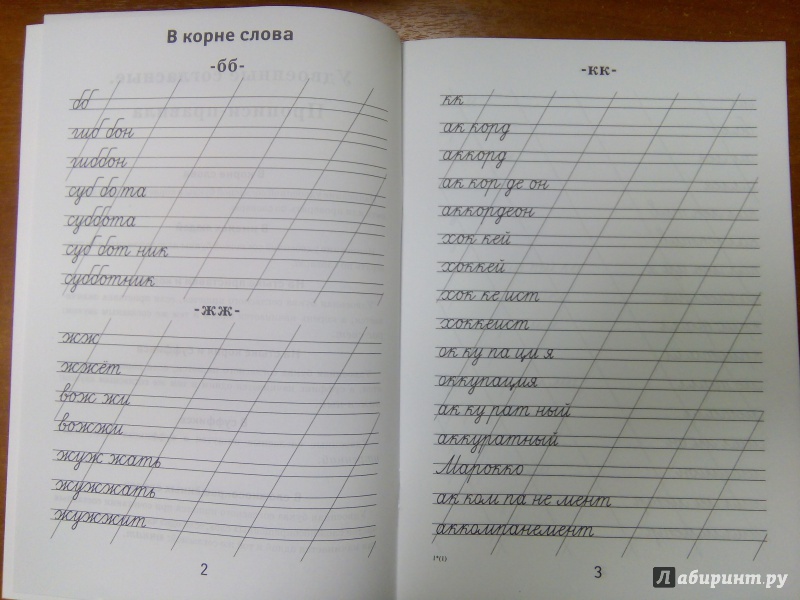 В корне слова
-бб-
бб
гиб бон
гиббон
суб бо та
суббота
суб бот ник
субботник
-жж-
жж
жжёт
вож жи
вожжи
жуж жать
жужжать
жужжит
2
-кк-
кк
ак корд
аккорд
ак кор де он
аккордеон
хок кей
хоккей
хок ке ист
хоккеист
ок ку па ци я
оккупация
ак ку рат ный
аккуратный
Марокко
ак ком па не мент
аккомпанемент
3
Лабиринт.ру